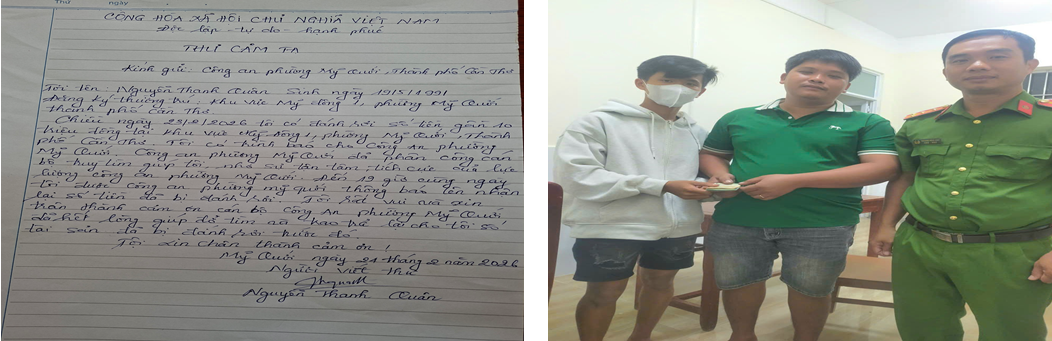 Thứ ngày
CỘNG HÒA XÃ HỘI CHỦ NGHĨA VIỆT NAM
Độc lập - tự do - hạnh phúc
THƯ CẢM TẠ
Kính gửi: Công an phường Mỹ Quới, Thành phố Cần Thơ
Tôi tên: Nguyễn Thanh Quân Sinh ngày 19/5/1991
Đăng ký thường trú: Khu vực Mỹ Đông 1, phường Mỹ Quới
thành phố Cần Thơ.
Chiều ngày 23/2/2026 tôi có đánh rơi số tiền gần 10
triệu đồng tại khu vực Mỹ Đông 1, phường Mỹ Quới, Thành
phố Cần Thơ. Tôi có trình báo cho Công An phường
Mỹ Quới. Công an phường Mỹ Quới đã phân công cán
bộ truy tìm giúp tôi, nhờ sự tận tâm, tích cực của lực
lượng công an phường Mỹ Quới. Đến 19 giờ cùng ngày
tôi được Công an phường mỹ quới thông báo lên nhận
lại số tiền đã bị đánh rơi. Tôi rất vui và xin
trân thành cảm ơn cán bộ Công An phường Mỹ Quới
đã hết lòng giúp đỡ tìm và trao trả lại cho tôi số
tài sản đã bị đánh rơi trước đó.
Tôi xin chân thành cảm ơn!
Mỹ Quới ngày 24 tháng 2 năm 2026
Người viết thư
Nguyễn Thanh Quân